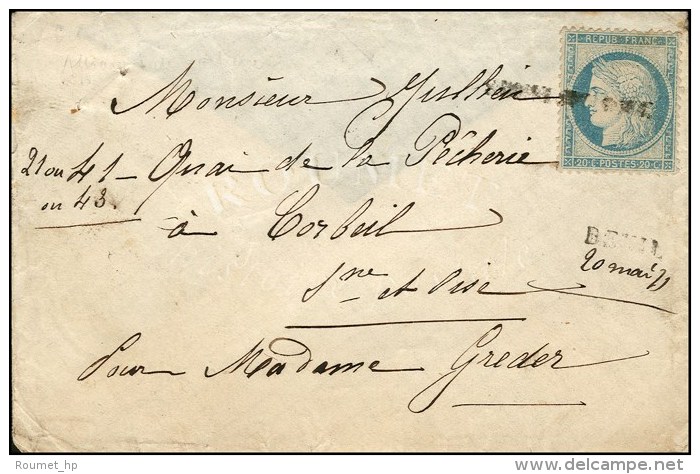 REPUB. FRANC.
20.C POSTES 20.C
Monsieur Jullien
21 ou 41 - Quai de la Pêcherie
ou 43.
à Corbeil
BEUIL
20 mai 71
Sne et Oise
Pour Madame Greder
ROUMET
Roumet_hp
delcampe.net